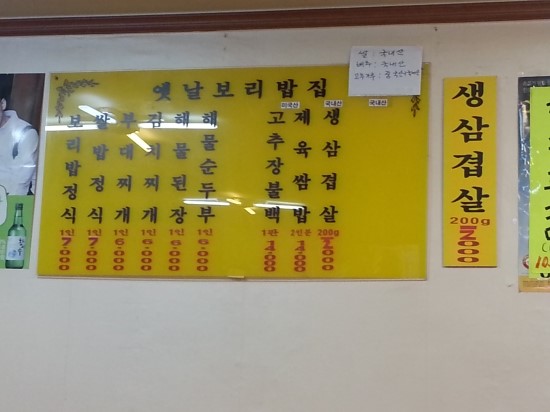 쌀 : 국내산
배추 : 국내산
옛날보리밥집
보리밥정식 1인 7,000
쌀밥정식 1인 7,000
부대찌개 1인 6,000
김치찌개 1인 6,000
해물된장 1인 6,000
해물순두부 1인 6,000
미국산
고추장불백 1판 14,000
국내산
제육쌈밥 2인분 14,000
국내산
생삼겹살 200g
생삼겹살
200g